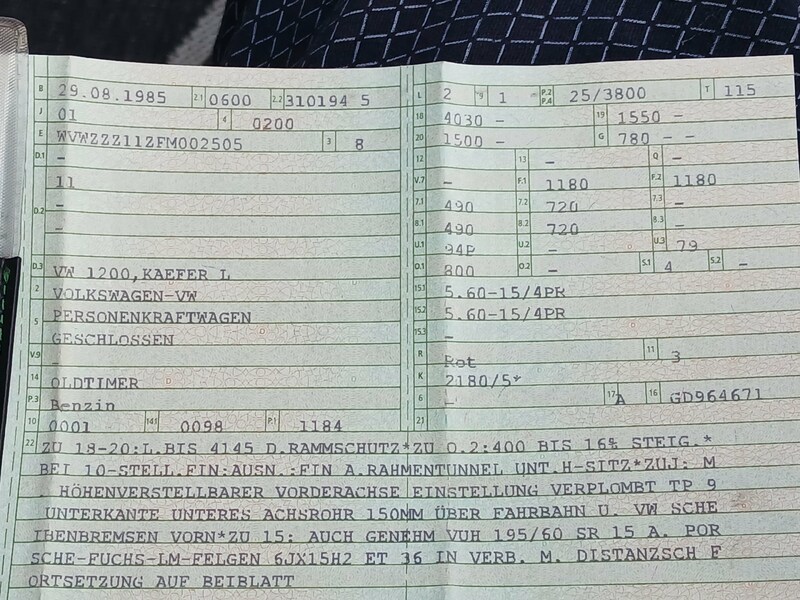 B 29.08.1985 2.1 0600 2.2 310194 5
J 01 4 0200
E WVWZZZ11ZFM002505 3 8
D.1 -
11
D.2 -
-
D.3 VW 1200,KAEFER L
2 VOLKSWAGEN-VW
5 PERSONENKRAFTWAGEN
GESCHLOSSEN
V.9
14 OLDTIMER
P.3 Benzin
10 0001 14.1 0098 P.1 1184
L 2 9 1 P.2 P.4 25/3800 T 115
18 4030 - 19 1550 -
20 1500 - G 780 - -
12 13 - Q -
V.7 - F.1 1180 F.2 1180
7.1 490 7.2 720 7.3 -
8.1 490 8.2 720 8.3 -
U.1 94P U.2 - U.3 79
O.1 800 O.2 - S.1 4 S.2 -
15.1 5.60-15/4PR
15.2 5.60-15/4PR
15.3 -
R Rot 11 3
K 2180/5*
6 - 17 A 16 GD964671
21
22 ZU 18-20:L.BIS 4145 D.RAMMSCHUTZ*ZU O.2:400 BIS 16% STEIG.*
BEI 10-STELL.FIN:AUSN.:FIN A.RAHMENTUNNEL UNT.H-SITZ*ZUJ: M
. HÖHENVERSTELLBARER VORDERACHSE EINSTELLUNG VERPLOMBT TP 9
UNTERKANTE UNTERES ACHSROHR 150MM ÜBER FAHRBAHN U. VW SCHE
IBENBREMSEN VORN*ZU 15: AUCH GENEHM VUH 195/60 SR 15 A. POR
SCHE-FUCHS-LM-FELGEN 6JX15H2 ET 36 IN VERB. M. DISTANZSCH F
ORTSETZUNG AUF BEIBLATT